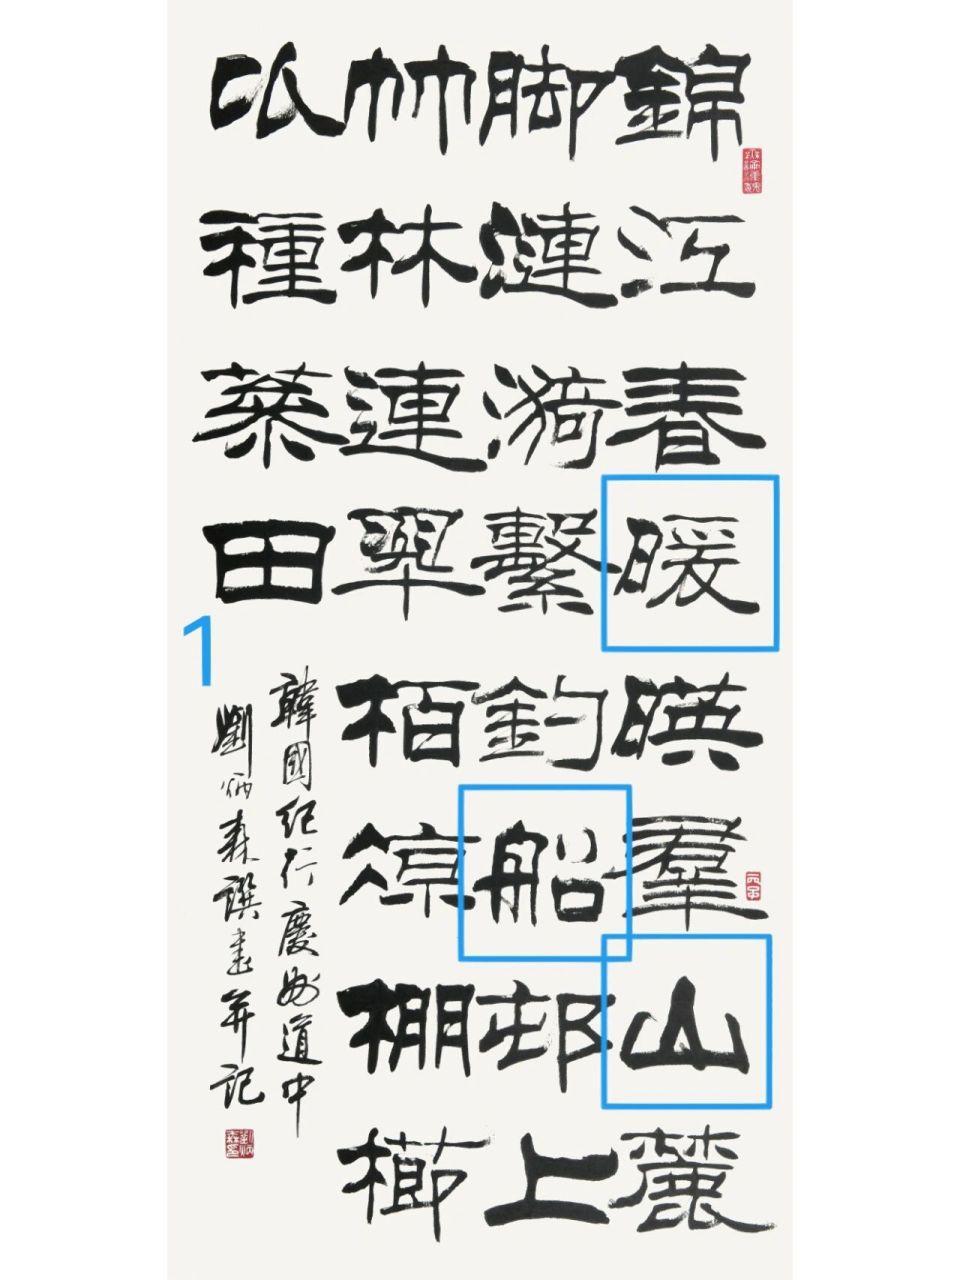 錦江春暖暎羣山麓
脚漣漪繫釣船邨上
竹林連翠栢凉棚櫛
以種菜田
1
韓國紀行慶州道中
劉炳森譔書并記